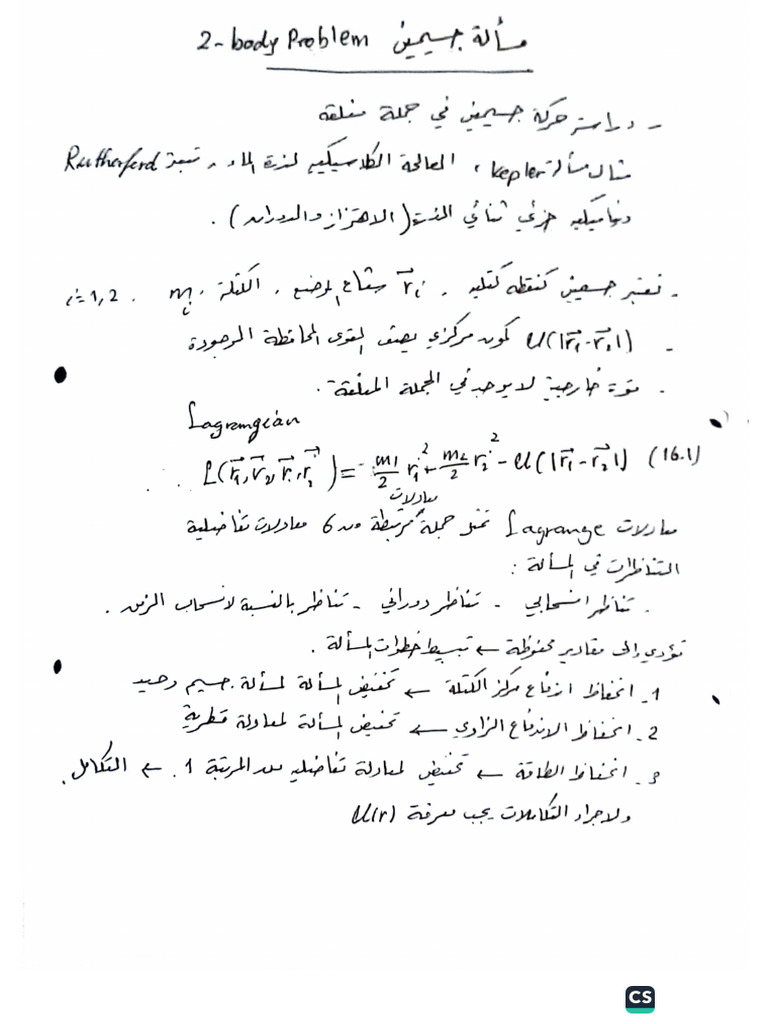 مسألة جسيمين 2-body Problem
- دراسة حركة جسيمين في جملة مغلقة
مثال مسألة Kepler، المعالجة الكلاسيكية لذرة الماء، تبعثر Rutherford
ديناميكية جزئ ثنائي الذرة (الاهتزاز والدوران).
- نعتبر جسمين كنقطة كتلية. r⃗i شعاع الموضع، الكتلة mi، i=1,2.
- U(|r⃗1-r⃗2|) كمون مركزي يصف القوى المحافظة الموجودة
. قوة خارجية لا يوجد في الجملة المغلقة.
Lagrangian
L(r⃗1, r⃗2, ṙ⃗1, ṙ⃗2) = m1/2 ṙ1² + m2/2 ṙ2² - U(|r⃗1-r⃗2|) (16.1)
معادلات Lagrange تمثل جملة معادلات مرتبطة من 6 معادلات تفاضلية
التناظرات في المسألة:
. تناظر انسحابي - تناظر دوراني - تناظر بالنسبة لانسحاب الزمن.
تؤدي إلى مقادير محفوظة ← تبسيط خطوات المسألة.
1. انحفاظ اندفاع مركز الكتلة ← تخفيض المسألة لمسألة جسيم وحيد
2. انحفاظ الاندفاع الزاوي ← تخفيض المسألة لمعادلة قطرية
3. انحفاظ الطاقة ← تخفيض لمعادلة تفاضلية من المرتبة 1. ← التكامل.
ولاجراء التكاملات يجب معرفة U(r)
CS